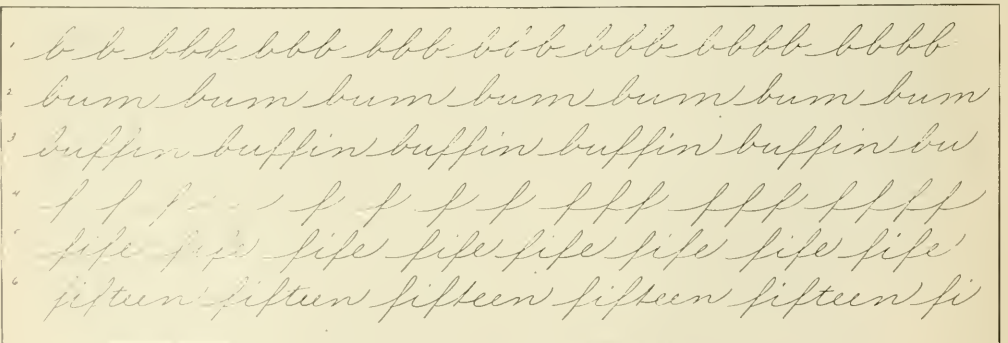 1 b b bbb bbb bbb bbb bbb bbbb bbbb
2 bum bum bum bum bum bum bum
3 buffin buffin buffin buffin buffin bu
4 f f f f f f f fff fff ffff
5 fife fife fife fife fife fife fife fife
6 fifteen fifteen fifteen fifteen fifteen fi